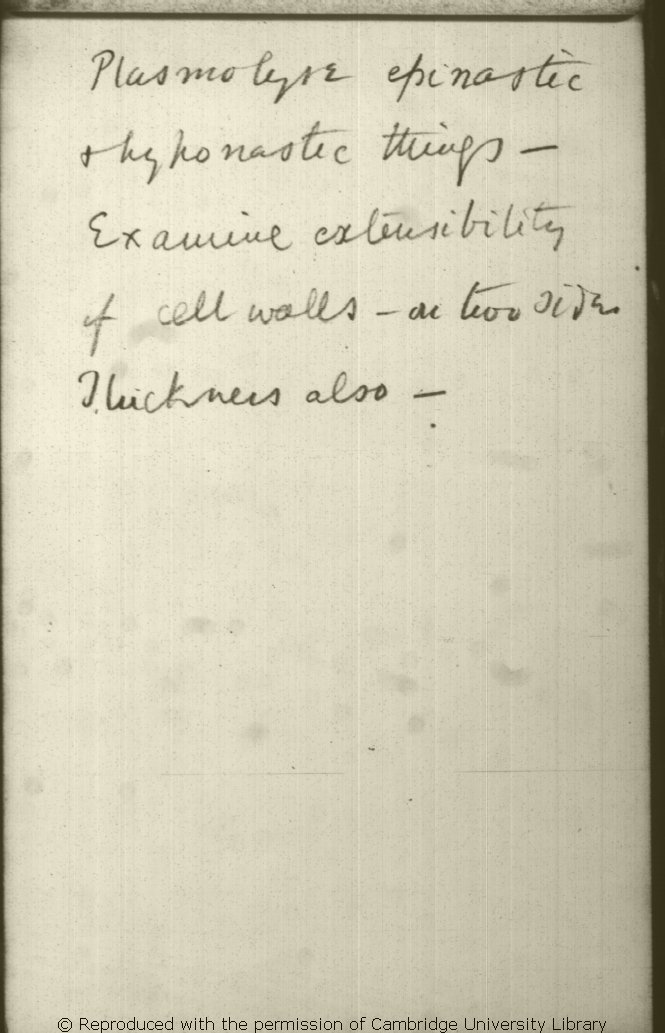 Plasmolyse epinastic
& hyponastic things —
Examine extensibility
of cell walls — on two sides
Thickness also —
© Reproduced with the permission of Cambridge University Library